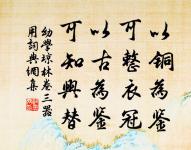 以銅為鑒
可整衣冠
以古為鑒
可知興替
幼學瓊林卷三器
用詞典網集